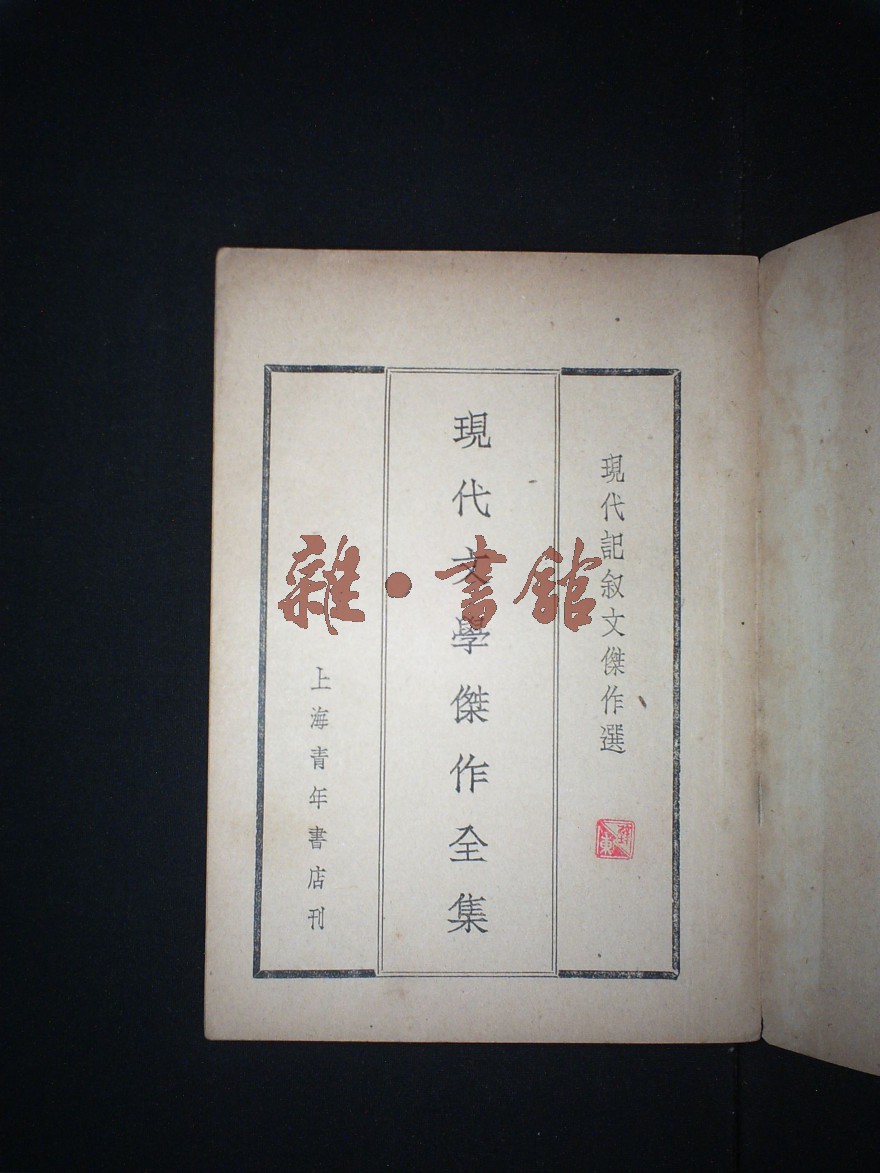 現代記叙文傑作選
現代文學傑作全集
上海青年書店刊
雜·書館